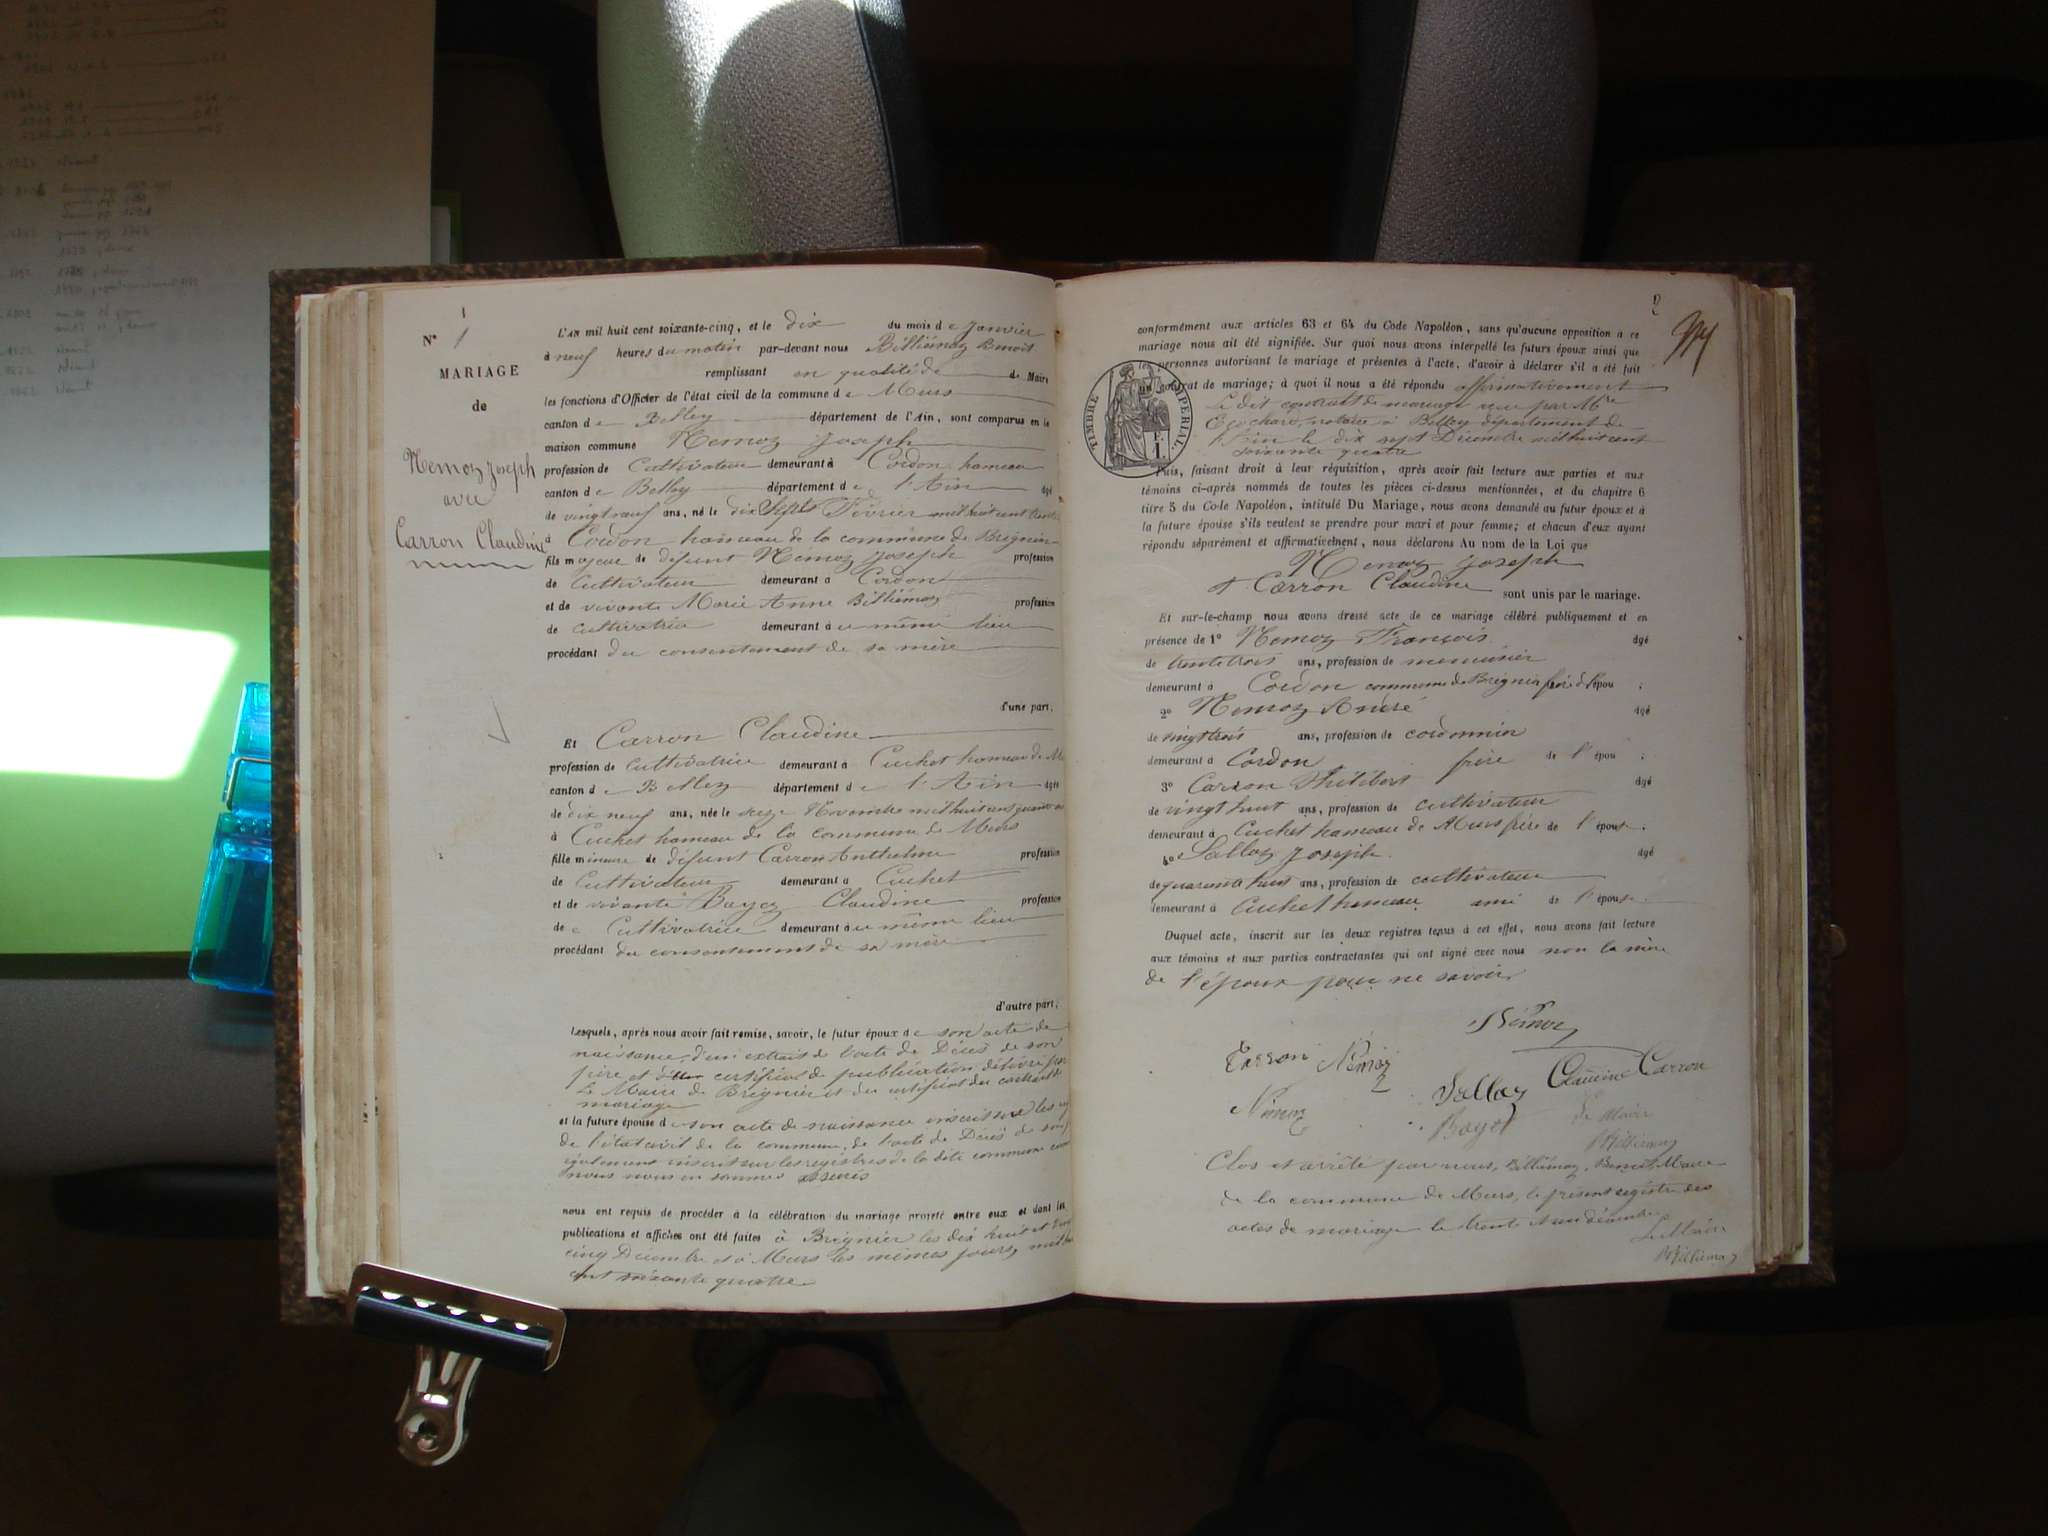 1
N° 1
MARIAGE
de
Nemoz Joseph
avec
Carron Claudine
L'AN mil huit cent soixante-cinq, et le dix du mois de Janvier
à neuf heures du matin par-devant nous Billiémaz Benoit
remplissant en qualité de de Maire
les fonctions d'Officier de l'état civil de la commune de Murs
canton de Belley département de l'Ain, sont comparus en la
maison commune Nemoz Joseph
profession de Cultivateur demeurant à Cordon hameau
canton de Belley département de l'Ain âgé
de vingt neuf ans, né le dix Sept Février mil huit cent trente
à Cordon hameau de la commune de Brégnier
fils majeur de défunt Némoz Joseph profession
de Cultivateur demeurant à Cordon
et de vivante Marie Anne Billiémaz profession
de cultivatrice demeurant à u même lieu
procédant du consentement de sa mère
d'une part;
Et Carron Claudine
profession de Cultivatrice demeurant à Cuchet hameau de
canton de Belley département de l'Ain âgée
de dix neuf ans, née le seize Novembre mil huit cent quarante
à Cuchet hameau de la commune de Murs
fille mineure de défunt Carron Anthelme profession
de Cultivateur demeurant à Cuchet
et de vivante Claudine profession
de Cultivatrice demeurant à u même lieu
procédant du consentement de sa mère
d'autre part;
Lesquels, après nous avoir fait remise, savoir, le futur époux de son acte de
naissance, d'un extrait de l'acte de Décès de son
père et certificat de publication délivré par
le Maire de Brégnier et du certificat du contrat de
mariage
et la future épouse de son acte de naissance inscrit sur les
de l'état civil de la commune, de l'acte de Décès de son
également inscrit sur les registres de la dite commune
nous nous en sommes assurés
nous ont requis de procéder à la célébration du mariage projeté entre eux et dont les
publications et affiches ont été faites à Brégnier les dix huit et vingt
cinq Décembre et à Murs les mêmes jours, mil huit
cent soixante quatre
2
conformément aux articles 63 et 64 du Code Napoléon, sans qu'aucune opposition a ce
mariage nous ait été signifiée. Sur quoi nous avons interpellé les futurs époux ainsi que
les personnes autorisant le mariage et présentes à l'acte, d'avoir à déclarer s'il a été fait
un contrat de mariage; à quoi il nous a été répondu affirmativement
TIMBRE IMPERIAL
Le dit contrat de mariage reçu par Mtre
notaire à Belley département de
l'Ain le dix sept Décembre mil huit cent
soixante quatre
Puis, faisant droit à leur réquisition, après avoir fait lecture aux parties et aux
témoins ci-après nommés de toutes les pièces ci-dessus mentionnées, et du chapitre 6
titre 5 du Code Napoléon, intitulé Du Mariage, nous avons demandé au futur époux et à
la future épouse s'ils veulent se prendre pour mari et pour femme; et chacun d'eux ayant
répondu séparément et affirmativement, nous déclarons Au nom de la Loi que
Nemoz Joseph
et Carron Claudine sont unis par le mariage.
Et sur-le-champ nous avons dressé acte de ce mariage célébré publiquement et en
présence de 1° Nemoz François âgé
de trente trois ans, profession de menuisier
demeurant à Cordon commune de Brégnier frère de l'épou ;
2° Nemoz André âgé
de vingt trois ans, profession de cordonnier
demeurant à Cordon frère de l'épou ;
3° Carron Philibert âgé
de vingt huit ans, profession de cultivateur
demeurant à Cuchet hameau de Murs frère de l'épouse.
4° Sallaz Joseph âgé
de quarante huit ans, profession de cultivateur
demeurant à Cuchet hameau ami de l'épouse.
Duquel acte, inscrit sur les deux registres tenus à cet effet, nous avons fait lecture
aux témoins et aux parties contractantes qui ont signé avec nous non la mère
de l'époux pour ne savoir
Némoz
Carron Némoz
Sallaz Claudine Carron
Némoz
Le Maire
Billiémaz
Clos et arrêté par nous, Billiémaz, Benoit, Maire
de la commune de Murs, le présent registre des
actes de mariage le trente et un décembre
Le Maire
Billiémaz